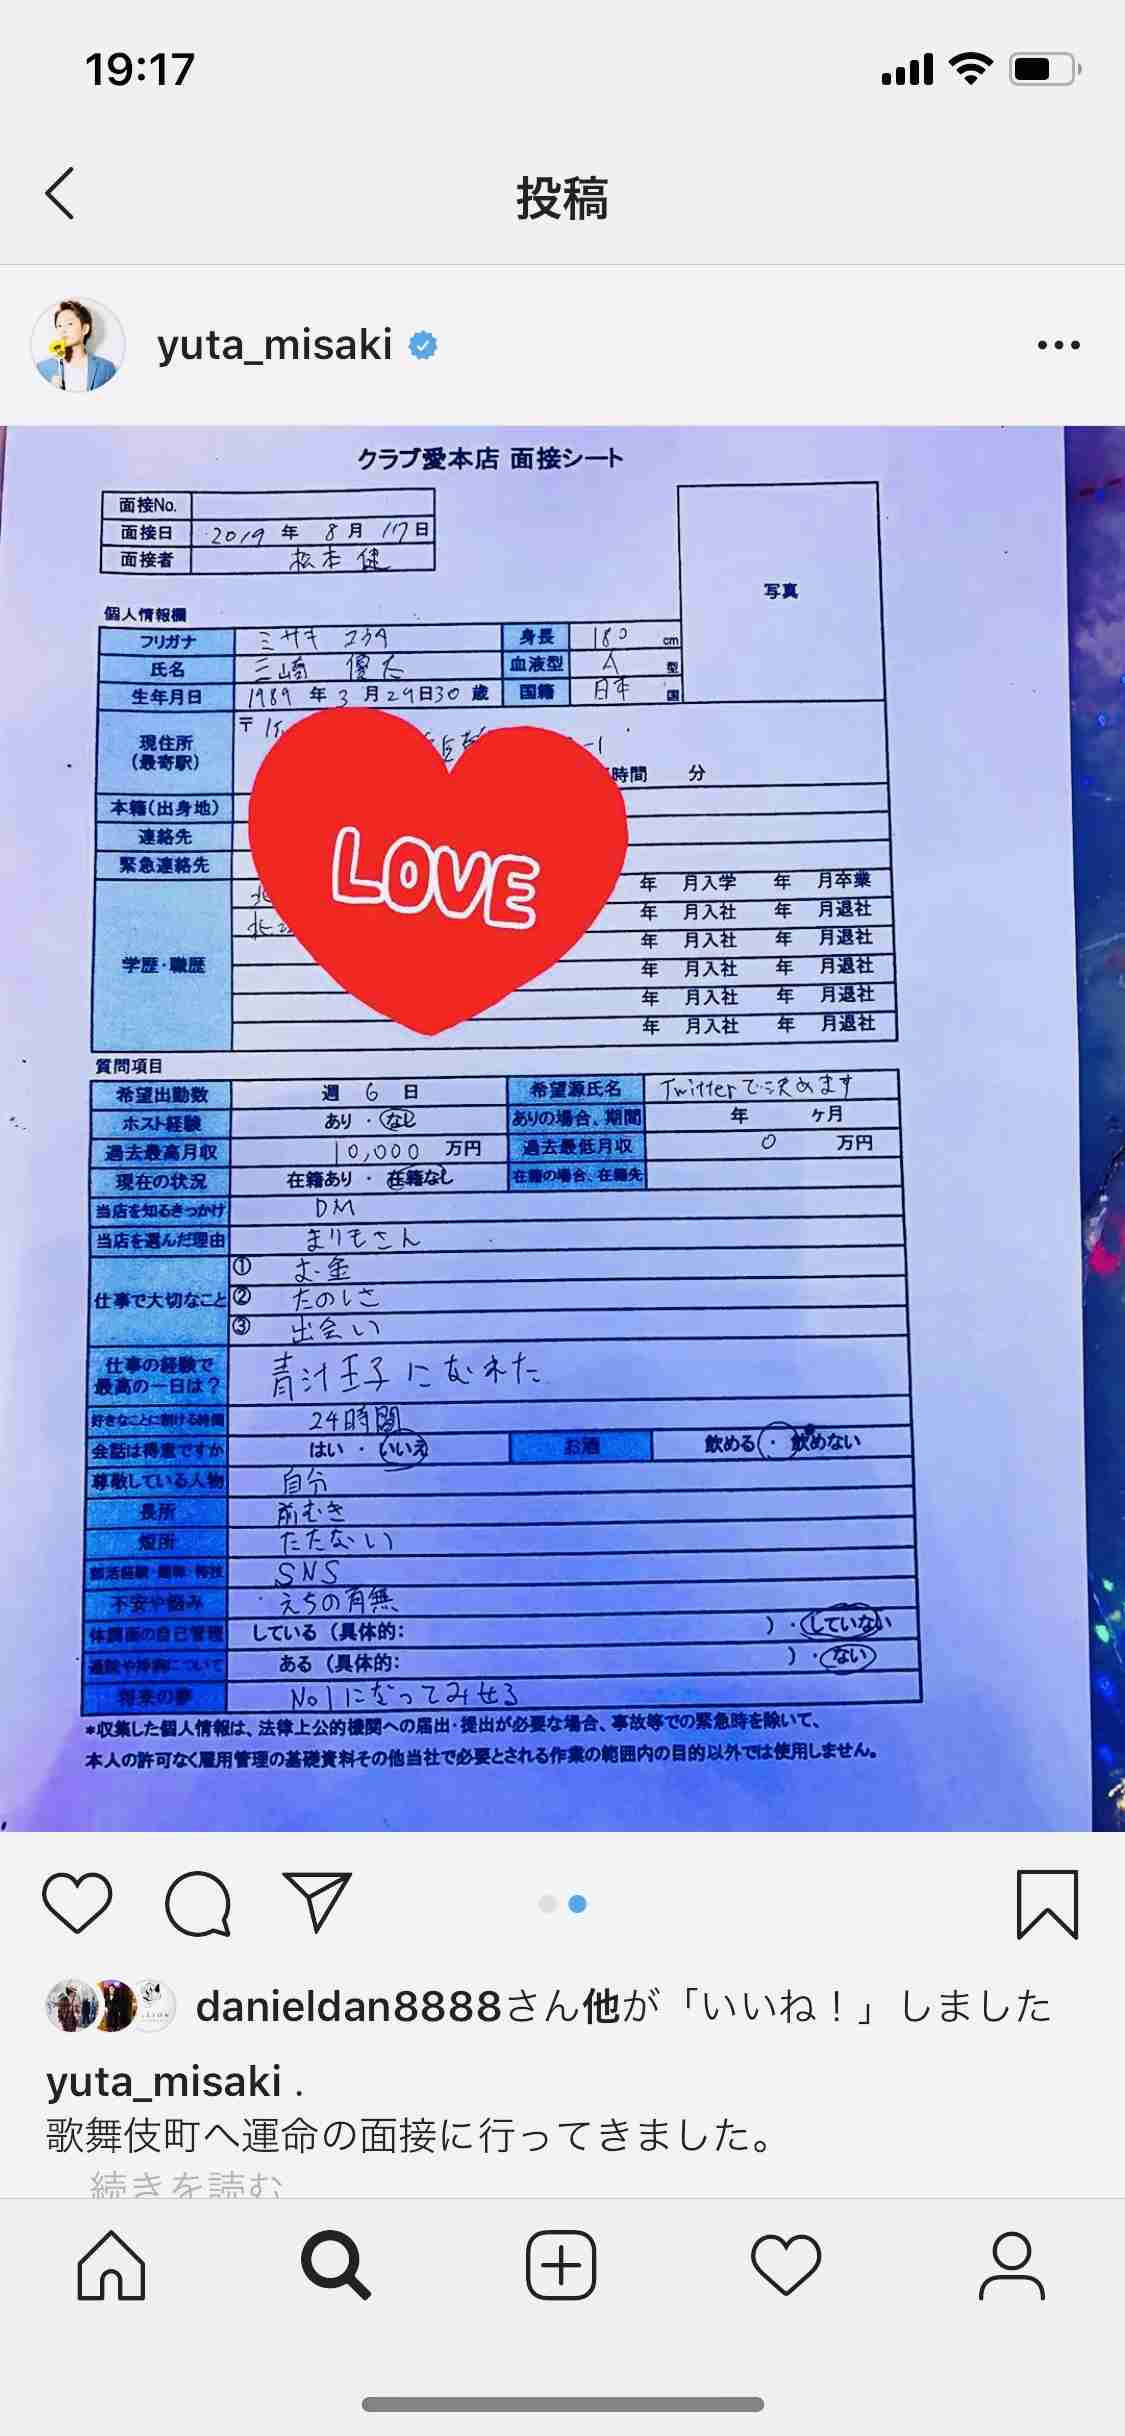 19:17
投稿
yuta_misaki
クラブ愛本店 面接シート
面接No.
面接日 2019 年 8 月 17 日
面接者 松本 健
写真
個人情報欄
フリガナ ミサキ ユウタ 身長 180 cm
氏名 三崎 優太 血液型 A 型
生年月日 1989 年 3 月 29 日 30 歳 国籍 日本 国
現住所 〒
(最寄駅) 時間 分
本籍(出身地)
連絡先
緊急連絡先
学歴・職歴
年 月入学 年 月卒業
年 月入社 年 月退社
年 月入社 年 月退社
年 月入社 年 月退社
年 月入社 年 月退社
年 月入社 年 月退社
LOVE
質問項目
希望出勤数 週 6 日 希望源氏名 Twitterで決めます
ホスト経験 あり・なし ありの場合、期間 年 ヶ月
過去最高月収 10,000 万円 過去最低月収 0 万円
現在の状況 在籍あり・在籍なし 在籍の場合、在籍先
当店を知るきっかけ DM
当店を選んだ理由 まりもさん
仕事で大切なこと ① お金
② たのしさ
③ 出会い
仕事の経験で
最高の一日は? 青汁王子になれた
好きなことに割ける時間 24時間
会話は得意ですか はい・いいえ お酒 飲める・飲めない
尊敬している人物 自分
長所 前むき
短所 たたない
SNS
不安や悩み えちの有無
体調面の自己管理 している(具体的: )・していない
ある(具体的: )・ない
将来の夢 No1になってみせる
*収集した個人情報は、法律上公的機関への届出・提出が必要な場合、事故等での緊急時を除いて、
本人の許可なく雇用管理の基礎資料その他当社で必要とされる作業の範囲内の目的以外では使用しません。
danieldan8888さん他が「いいね!」しました
yuta_misaki .
歌舞伎町へ運命の面接に行ってきました。
続きを読む